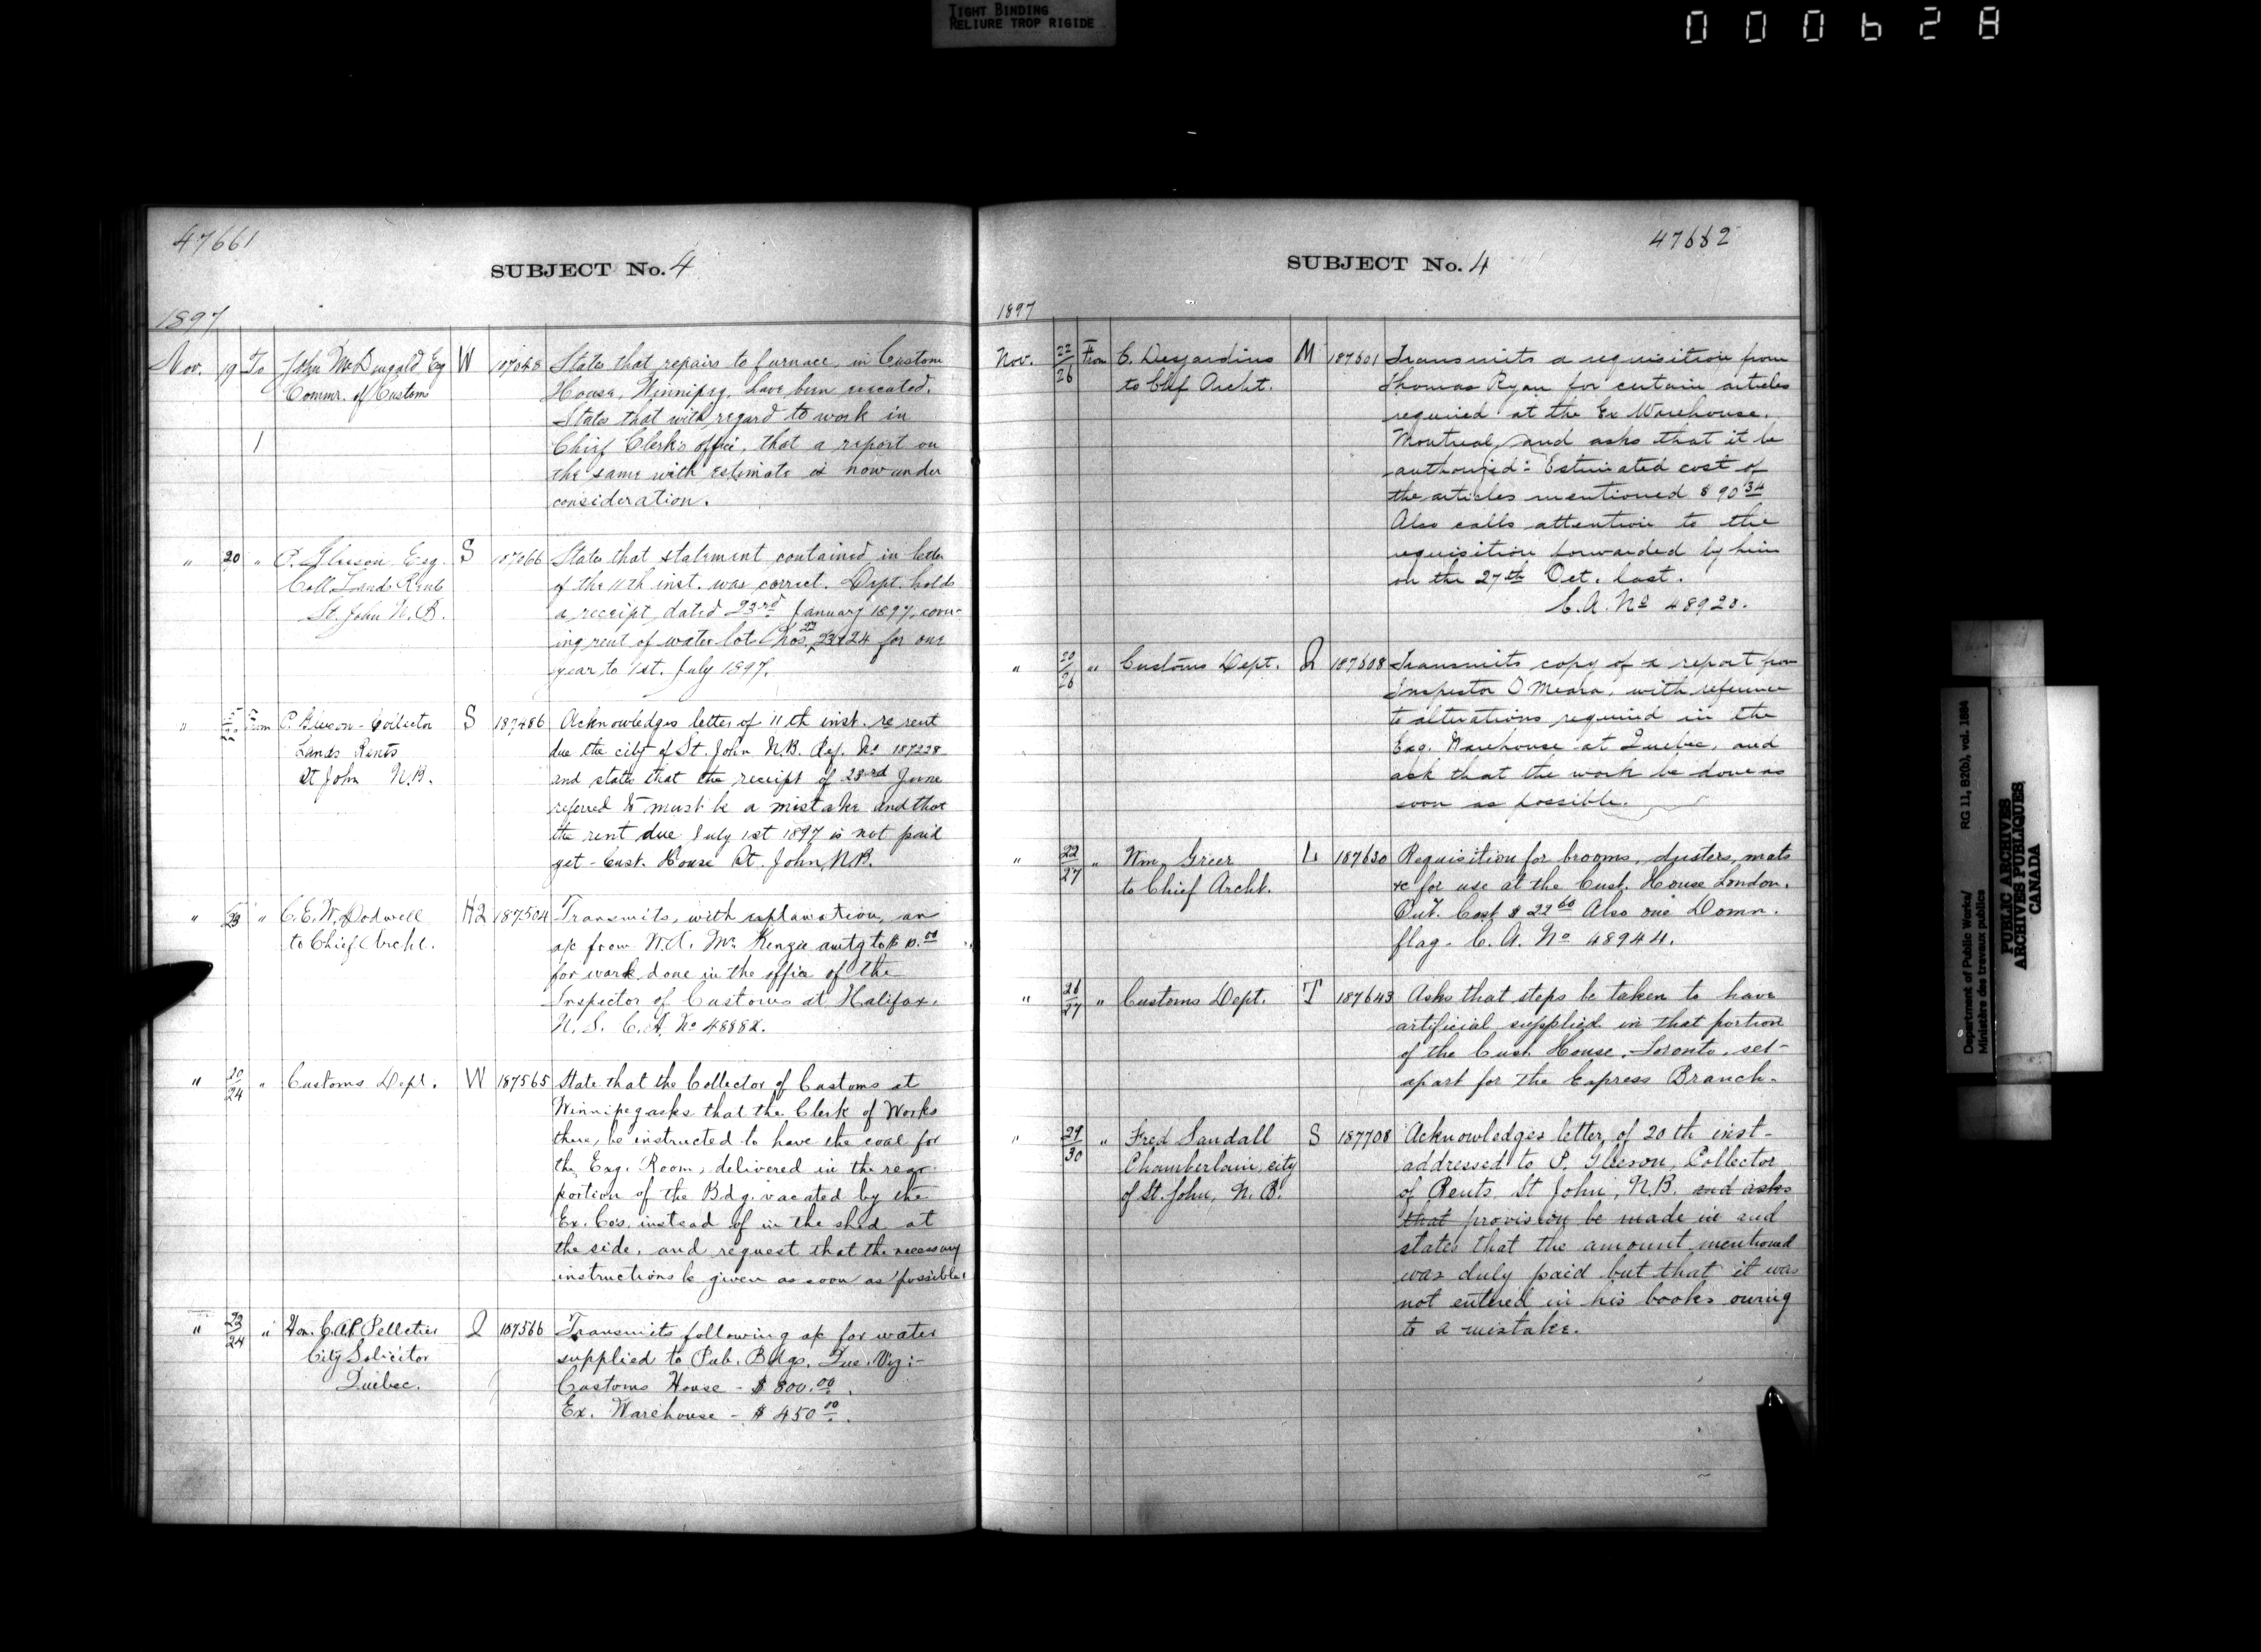 TIGHT BINDING
RELIURE TROP RIGIDE
000628
47661
SUBJECT No. 4
1897
Nov. 19 To John McDougald Esq W 187048 States that repairs to furnace, in Custom
Commr. of Customs House, Winnipeg, have been executed.
States that with regard to work in
Chief Clerk's office, that a report on
the same with estimate is now under
consideration.
" 20 " P. Gleeson Esq. S 187066 States that statement contained in letter
Coll. Lands Rents of the 11th inst. was correct. Dept. holds
St. John N.B. a receipt dated 23rd January 1897, cover-
ing rent of water lot Nos. 22 23 & 24 for one
year, to 1st. July 1897.
" From P. Gleeson - Collector S 187486 Acknowledges letter of 11th inst. re rent
Lands Rents due the city of St. John N.B. Ref. No 187228
St John N.B. and states that the receipt of 23rd June
referred to must be a mistake and that
the rent due July 1st 1897 is not paid
yet - Cust. House St. John, N.B.
" 23 " C.E.W. Dodwell H2 187504 Transmits, with explanation, an
to Chief Archt. a/c from W.A. McKenzie amtg to $
for work done in the office of the
Inspector of Customs at Halifax,
N.S. C.A. No 48882.
" 20/24 " Customs Dept. W 187565 State that the Collector of Customs at
Winnipeg asks that the Clerk of Works
there, be instructed to have the coal for
the Exg. Room, delivered in the rear
portion of the Bdg. vacated by the
Ex. Co's. instead of in the shed at
the side, and request that the necessary
instructions be given as soon as possible.
" 23/24 " Hon. C.A.P. Pelletier Q 187566 Transmits following a/c for water
City Solicitor supplied to Pub. Bdgs. Que. Viz:-
Quebec. Customs House - $ 800.00.
Ex. Warehouse - $ 450.00.
47662
SUBJECT No. 4
1897
Nov. 22/26 From C. Desjardins M 187601 Transmits a requisition from
to Chf Archt. Thomas Ryan for certain articles
required at the Ex Warehouse.
Montreal, and asks that it be
authorized: Estimated cost of
the articles mentioned $ 90.34
Also calls attention to the
requisition forwarded by him
on the 27th Oct. last.
C.A. No 48920.
" 20/26 " Customs Dept. Q 187608 Transmits copy of a report from
Inspector O'Meara, with reference
to alterations required in the
Exg. Warehouse at Quebec, and
ask that the work be done as
soon as possible.
" 22/27 " Wm. Greer L 187630 Requisition for brooms, dusters, mats
to Chief Archt. &c for use at the Cust. House London.
Cost $ 22.60 Also one Domn.
flag - C.A. No 48944.
" 26/27 " Customs Dept. T 187643 Asks that steps be taken to have
artificial supplied in that portion
of the Cust. House, Toronto, set-
apart for the Express Branch.
" 29/30 " Fred Sandall S 187708 Acknowledges letter of 20th inst-
Chamberlain, city addressed to P. Gleeson, Collector
of St. John, N.B. of Rents, St John, N.B. and asks
that provision be made in and
states that the amount mentioned
was duly paid but that it was
not entered in his books owing
to a mistake.
Department of Public Works/
Ministère des travaux publics
RG 11, B2(b), vol. 1884
PUBLIC ARCHIVES
ARCHIVES PUBLIQUES
CANADA